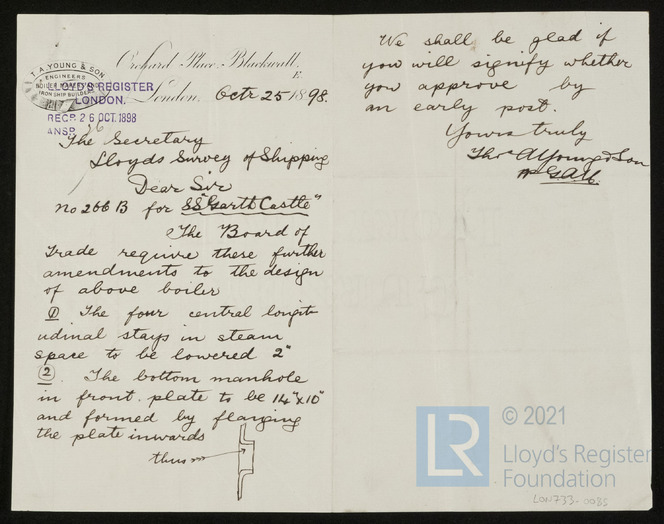 T. A. YOUNG & SON
ENGINEERS
IRON SHIP BUILDERS
Orchard Place, Blackwall,
E.
LLOYD'S REGISTER
LONDON.
RECD 26 OCT. 1898
ANSD 26
London, Octr 25 1898.
The Secretary
Lloyds Survey of Shipping
Dear Sir
No 266 B for SS "Garth Castle"
The Board of
Trade require these further
amendments to the design
of above boiler
① The four central longit-
udinal stays in steam
space to be lowered 2"
②. The bottom manhole
in front plate to be 14" x 10"
and formed by flanging
the plate inwards
thus
We shall be glad if
you will signify whether
you approve by
an early post.
Yours truly
Thos A Young & Son
© 2021
LR
Lloyd's Register
Foundation
LON733-0085